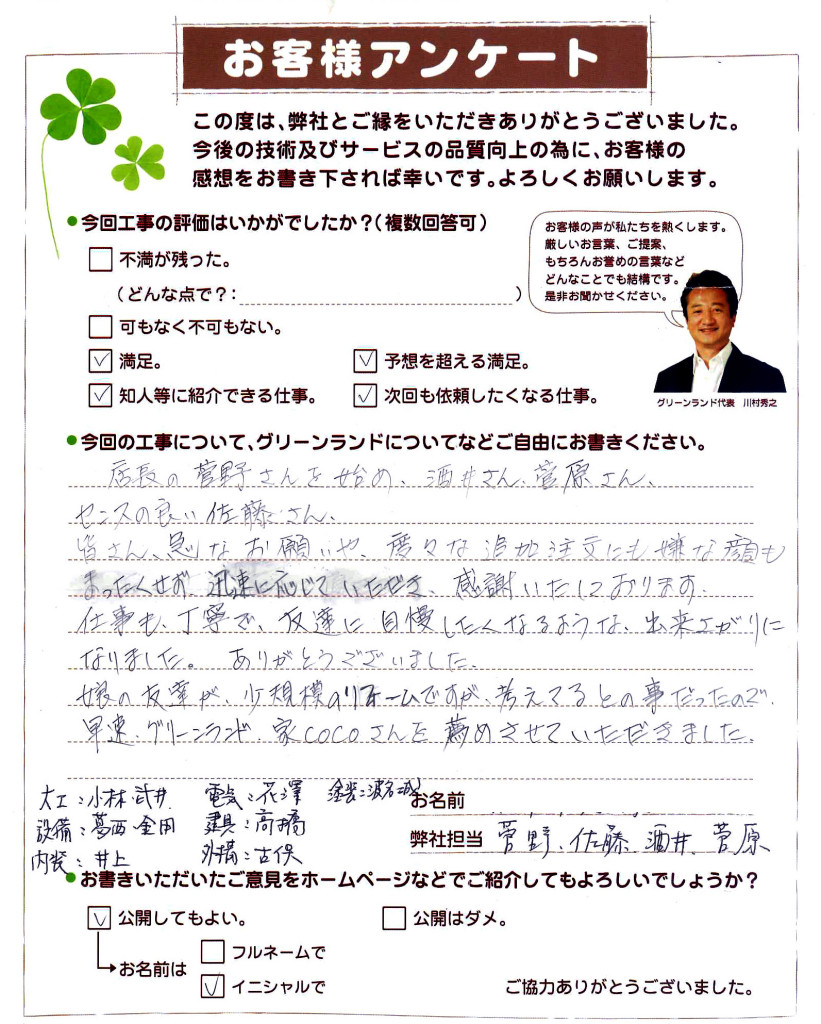 お客様アンケート
この度は、弊社とご縁をいただきありがとうございました。
今後の技術及びサービスの品質向上の為に、お客様の
感想をお書き下されば幸いです。よろしくお願いします。
●今回工事の評価はいかがでしたか?(複数回答可)
不満が残った。
(どんな点で?: )
可もなく不可もない。
満足。
予想を超える満足。
知人等に紹介できる仕事。
次回も依頼したくなる仕事。
お客様の声が私たちを熱くします。
厳しいお言葉、ご提案、
もちろんお誉めの言葉など
どんなことでも結構です。
是非お聞かせください。
グリーンランド代表 川村秀之
●今回の工事について、グリーンランドについてなどご自由にお書きください。
店長の菅野さんを始め、酒井さん、菅原さん、
センスの良い佐藤さん、
皆さん、急なお願いや、度々な追加注文にも嫌な顔も
まったくせず、迅速に応じていただき、感謝いたしております。
仕事も、丁寧で、友達に自慢したくなるような、出来上がりに
なりました。ありがとうございました。
娘の友達が、少規模のリフォームですが、考えてるとの事だったので、
早速、グリーンランド、家cocoさんを薦めさせていただきました。
大工:小林・武井 電気:花澤 塗装:波名城
設備:葛西・金田 建具:高橋
内装:井上 外構:古俣
お名前
弊社担当 菅野、佐藤、酒井、菅原
●お書きいただいたご意見をホームページなどでご紹介してもよろしいでしょうか?
公開してもよい。
公開はダメ。
お名前は
フルネームで
イニシャルで
ご協力ありがとうございました。